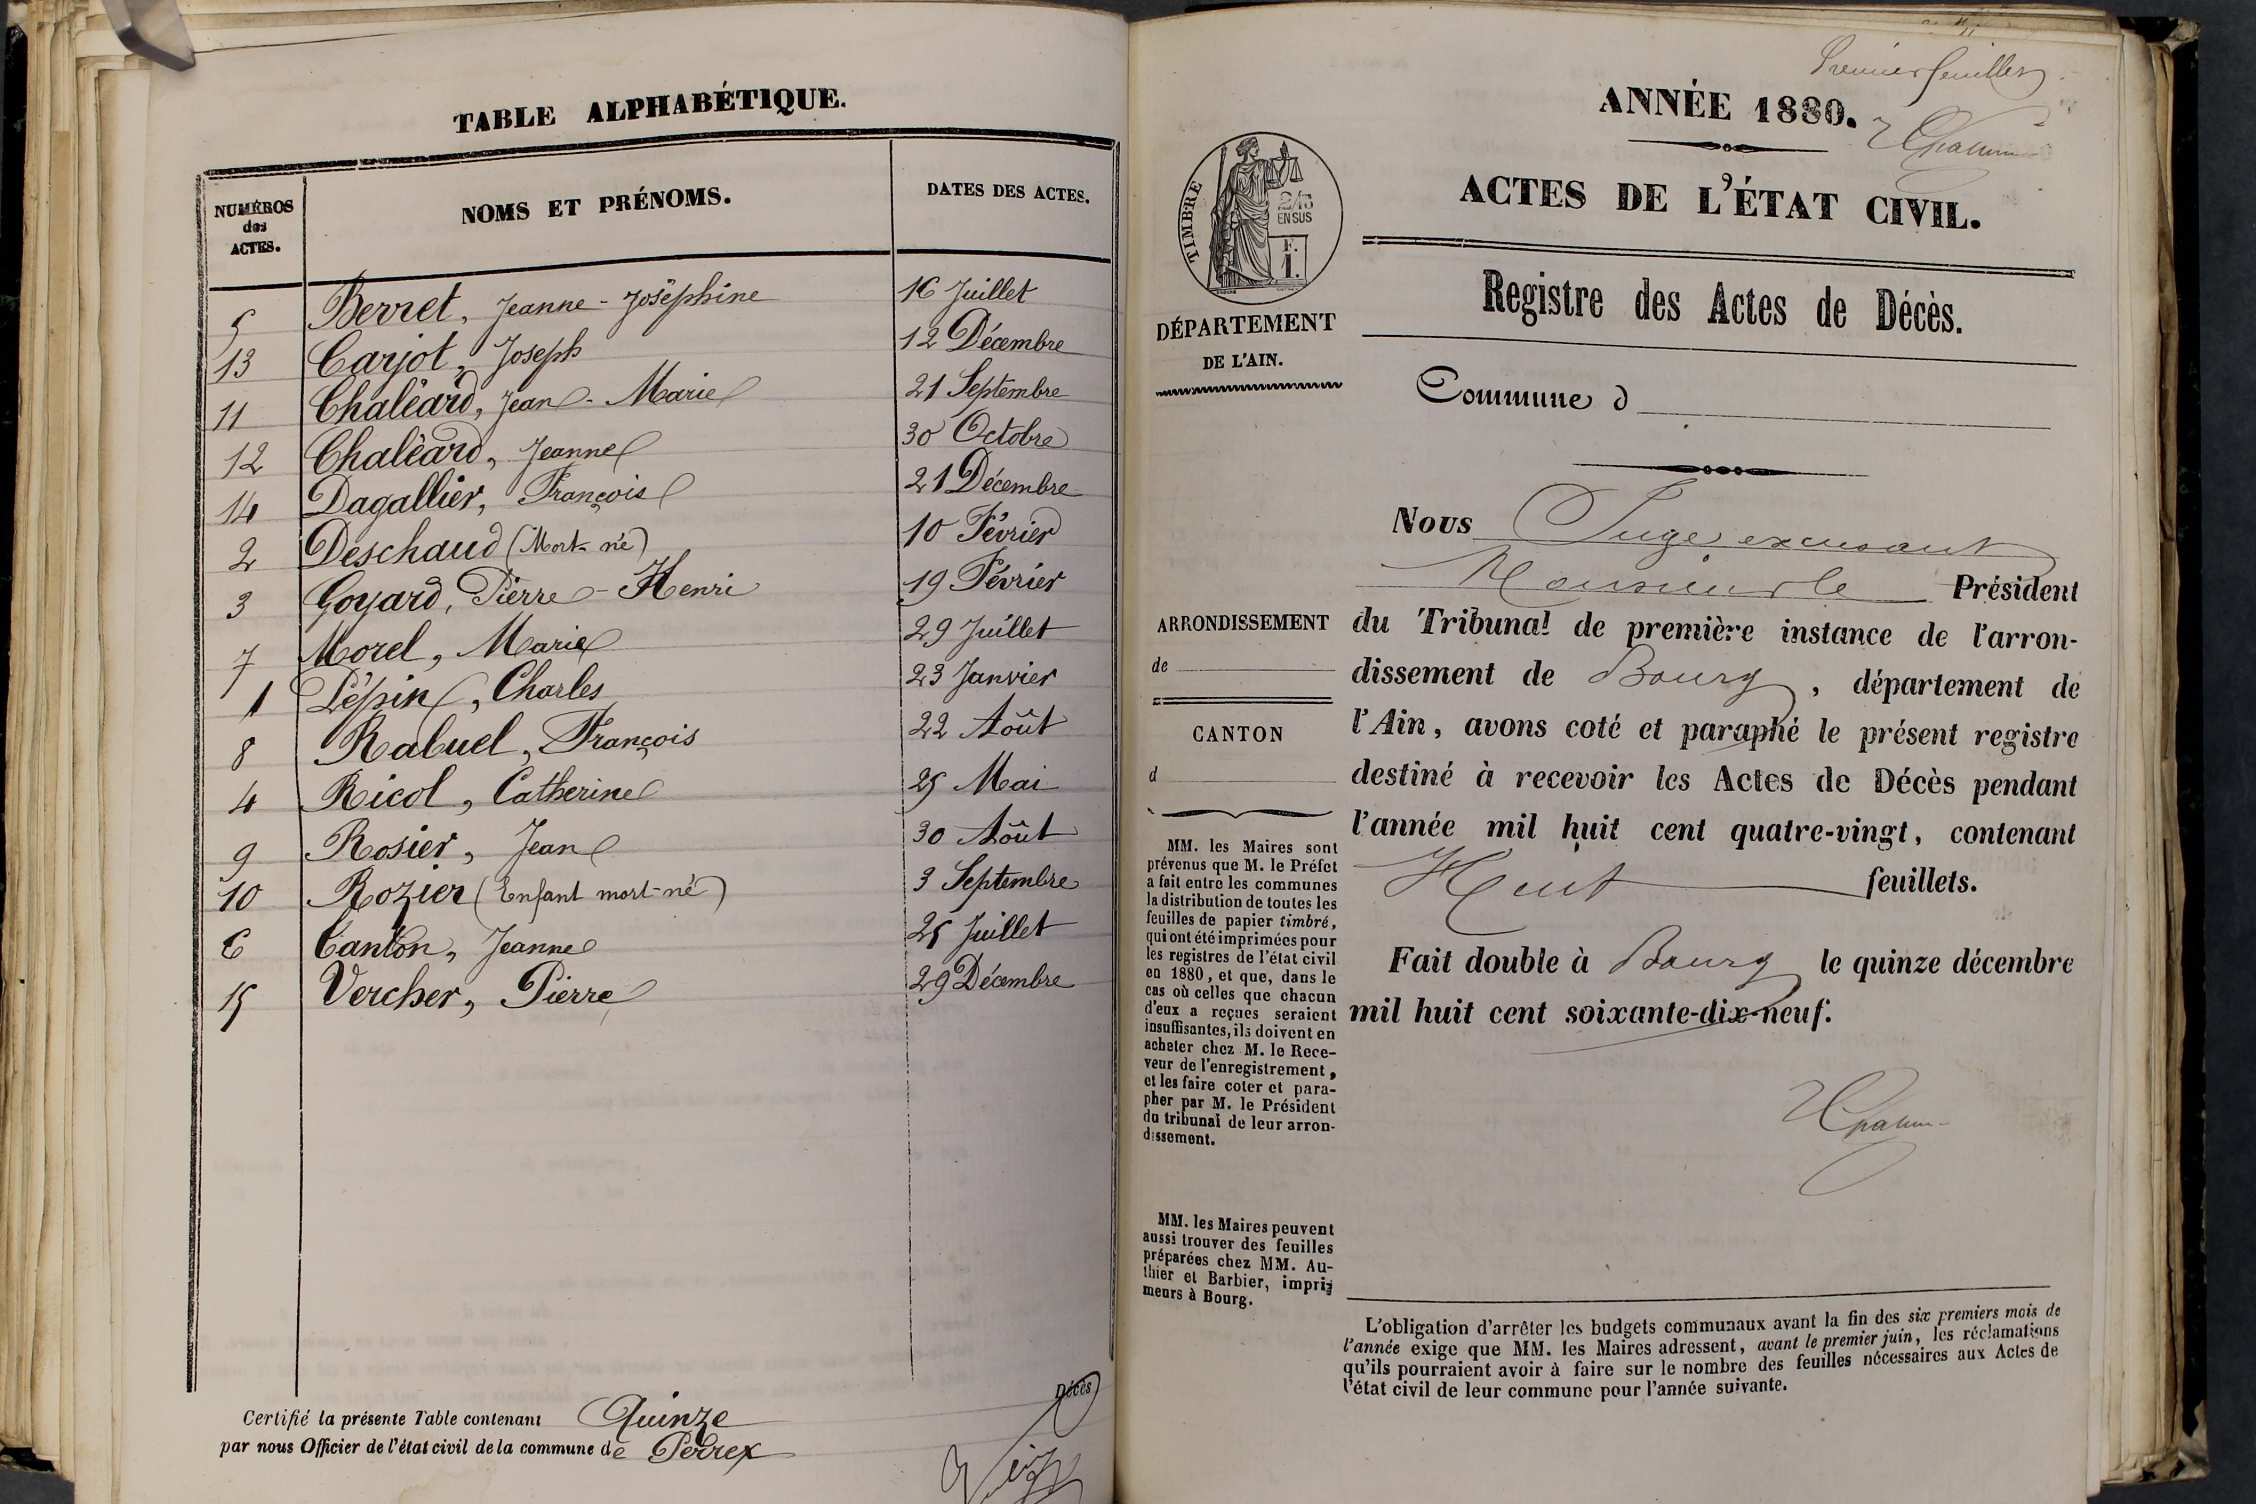 TABLE ALPHABÉTIQUE.
NUMÉROS des ACTES.
NOMS ET PRÉNOMS.
DATES DES ACTES.
5 Berret, Jeanne-Joséphine 16 Juillet
13 Carjot, Joseph 12 Décembre
11 Chaléard, Jean-Marie 21 Septembre
12 Chaléard, Jeanne 30 Octobre
14 Dagallier, François 21 Décembre
2 Deschaud (Mort-né) 10 Février
3 Goyard, Pierre-Henri 19 Février
7 Morel, Marie 29 Juillet
1 Pépin, Charles 23 Janvier
8 Rabuel, François 22 Août
4 Ricol, Catherine 25 Mai
9 Rosier, Jean 30 Août
10 Rozier (Enfant mort-né) 3 Septembre
6 Canton, Jeanne 25 Juillet
15 Vercher, Pierre 29 Décembre
Certifié la présente Table contenant Quinze Décès
par nous Officier de l'état civil de la commune de Perrex
Premier feuillet
ANNÉE 1880.
ACTES DE L'ÉTAT CIVIL.
TIMBRE
2/10
EN SUS
F.
1.
DÉPARTEMENT
DE L'AIN.
Registre des Actes de Décès.
Commune d
Nous Juge excusant
Monsieur le Président
du Tribunal de première instance de l'arron-
dissement de Bourg, département de
l'Ain, avons coté et paraphé le présent registre
destiné à recevoir les Actes de Décès pendant
l'année mil huit cent quatre-vingt, contenant
Huit feuillets.
Fait double à Bourg le quinze décembre
mil huit cent soixante-dix-neuf.
ARRONDISSEMENT
de
CANTON
d
MM. les Maires sont
prévenus que M. le Préfet
a fait entre les communes
la distribution de toutes les
feuilles de papier timbré,
qui ont été imprimées pour
les registres de l'état civil
en 1880, et que, dans le
cas où celles que chacun
d'eux a reçues seraient
insuffisantes, ils doivent en
acheter chez M. le Rece-
veur de l'enregistrement,
et les faire coter et para-
pher par M. le Président
du tribunal de leur arron-
dissement.
MM. les Maires peuvent
aussi trouver des feuilles
préparées chez MM. Au-
thier et Barbier, impri-
meurs à Bourg.
L'obligation d'arrêter les budgets communaux avant la fin des six premiers mois de
l'année exige que MM. les Maires adressent, avant le premier juin, les réclamations
qu'ils pourraient avoir à faire sur le nombre des feuilles nécessaires aux Actes de
l'état civil de leur commune pour l'année suivante.